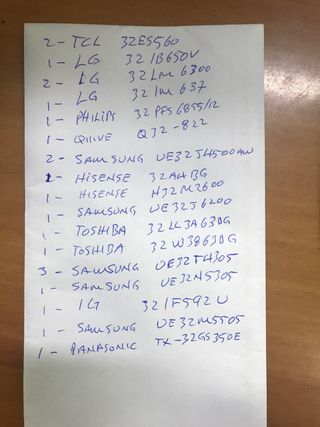 2 - TCL 32ES560
1 - LG 32LB650V
2 - LG 32LM6300
1 - LG 32LM637
1 - PHILIPS 32PFS6855/12
1 - QILIVE Q32-822
2 - SAMSUNG UE32J4500AW
1 - HISENSE 32A4BG
1 - HISENSE H32M2600
1 - SAMSUNG UE32J6200
1 - TOSHIBA 32LL3A63DG
1 - TOSHIBA 32W3863DG
3 - SAMSUNG UE32T4305
1 - SAMSUNG UE32N5305
1 - LG 32LF592U
1 - SAMSUNG UE32M5505
1 - PANASONIC TX-32GS350E